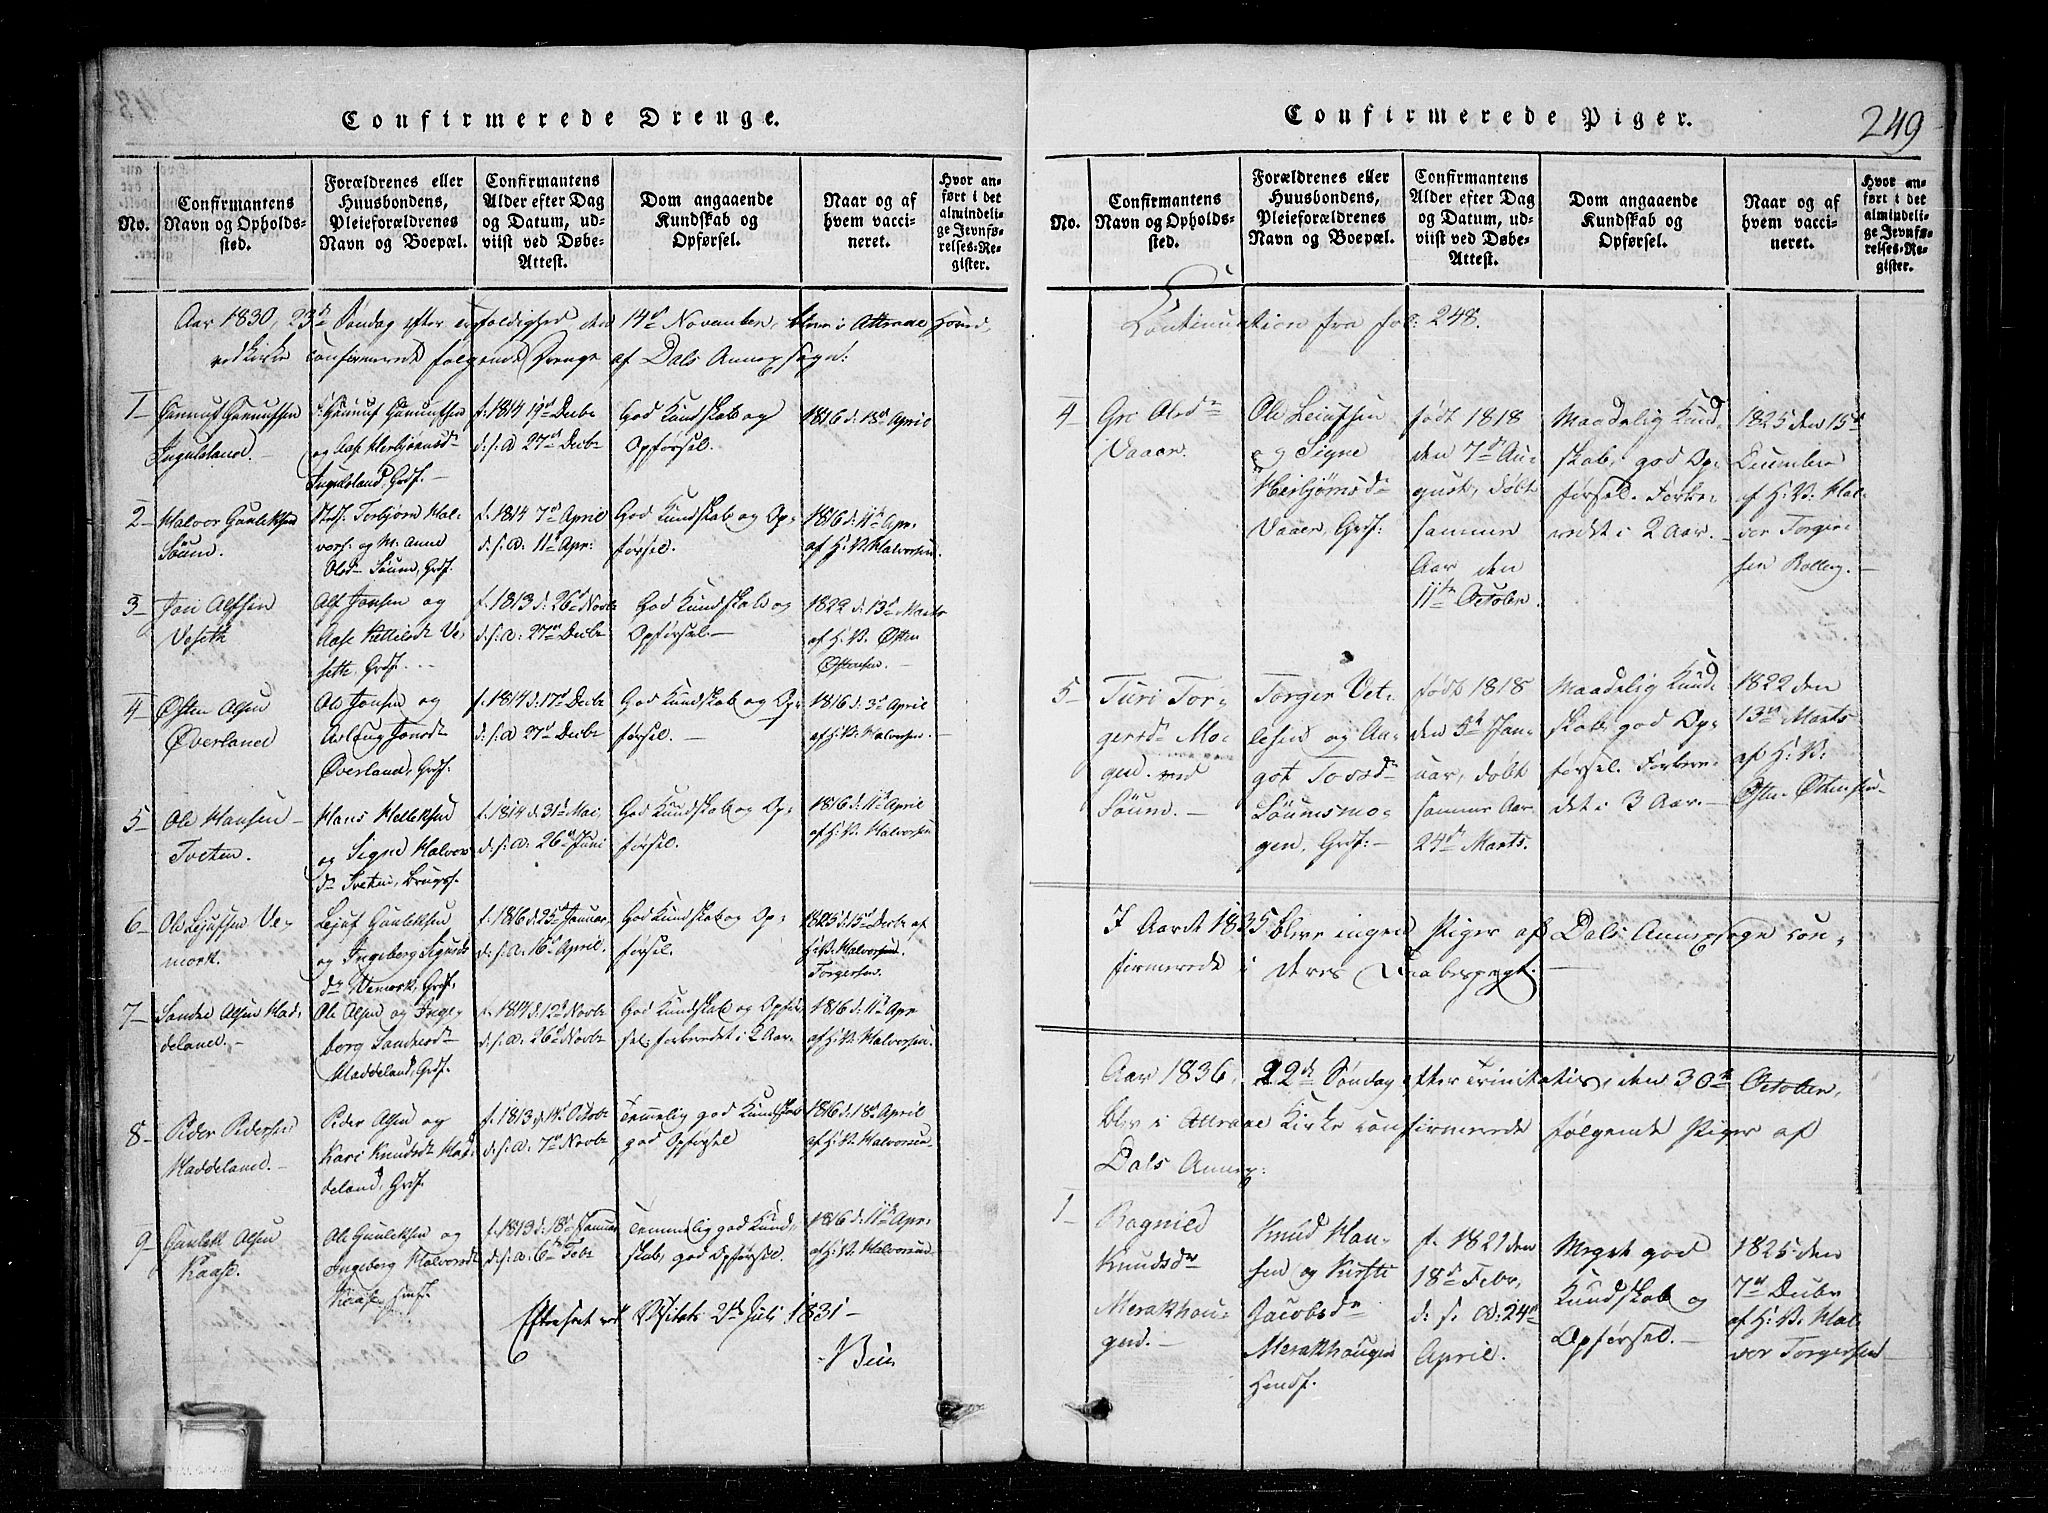 Confirmerede Drenge.
No.
Confirmantens
Navn og Opholds-
sted.
Forældrenes eller
Huusbondens,
Pleieforældrenes
Navn og Boepæl.
Confirmantens
Alder efter Dag
og Datum, ud-
viist ved Døbe-
Attest.
Dom angaaende
Kundskab og
Opførsel.
Naar og af
hvem vacci-
neret.
Hvor an-
ført i det
almindeli-
ge Jevnfø-
relses-Re-
gister.
Aar 1830, 23de Søndag efter den 14de November, blev i Attraae Hoved,
ved Kirke confirmeret følgende Drenge af Dals Annexsogn:
1
Gunnuf Gunnufsen
Ingulsland.
Gunnuf Gunnufsen
og Aase Herbjørnsdr
Ingulsland, Grdf.
f. 1814 19de Decbr
d. s. A 27de Decbr
God Kundskab og
Opførsel.
1816 d: 18de April
2
Halvor Gunleksen
Søum.
Stedf. Torbjørn Hal-
vors: og M: Anne
Olsdr Søum, Grdf.
f. 1814 7de April
d. s. A. 11te Apr:
God Kundskab og Op-
førsel.
1816 d: 11te Apr.
af H: B. Halvorsen
3
Jon Alfsen
Veseth
Alf Jonsen og
Aase Kittilsdr Ve-
seth, Grdf.
f. 1813 d: 26de Novbr
d. s. A: 27de Decbr
God Kundskab og
Opførsel.
1822 d. 13de Marts
af H: B. Østen
Østensen.
4
Østen Olsen
Øverland
Ole Jonsen og
Aslaug Jonsdr
Øverland, Grdf.
f. 1814 d: 17de Decbr
d. s. A 27de Decbr
God Kundskab og Op-
førsel.
1816 d: 3de April
af H: B: Halvorsen.
5
Ole Hansen
Tveten.
Hans Helleksen
og Signe Halvors
dr Tveten, Brugsf.
f. 1814 d. 31te Mai,
d. s. A: 26de Juni
God Kundskab og Op-
førsel.
1816 d. 11te April
af H: B. Halvorsen
6
Ole Lejufsen Ve-
mork.
Lejuf Gunleksen
og Ingeborg Sigurds
dr Vemork, Grdf.
f. 1816 d: 25de Januar
d. s. A. 16de April.
God Kundskab og Op-
førsel.
1825 d: 15de Decbr af
H: B. Halvorsen.
Torgersen
7
Sondre Olsen Had-
deland.
Ole Olsen og Inge-
borg Sondresdr
Haddeland, Grdf.
f. 1814 d. 12te Novbr
d. s. A: 26de Novbr
God Kundskab og Opfør
sel, forberedet i 2 Aar.
1816 d: 11te Apr
af H: B. Halvorsen.
8
Peder Pedersen
Haddeland.
Peder Olsen og
Kari Knudsdr Had-
deland, Grdf.
f. 1813 d 14de Octobr
d. s. A. 7de Novbr
Temmelig god Kundskab
god Opførsel
1816 d: 18de April
af H: B. Halvorsen
9
Gunlek Olsen
Kaase.
Ole Gunleksen og
Ingeborg Halvorsdr
Kaase, Huusf.
f. 1813 d. 18de Januar
d. s. A. 6te Febr
Temmelig god Kund-
skab, god Opførsel.
1816 d: 11te Apr:
af H: B. Halvorsen
Efterseet ved Visitats 2den Juli 1831
Confirmerede Piger.
249
No.
Confirmantens
Navn og Opholds-
sted.
Forældrenes eller
Huusbondens,
Pleieforældrenes
Navn og Boepæl.
Confirmantens
Alder efter Dag
og Datum, ud-
viist ved Døbe-
Attest.
Dom angaaende
Kundskab og
Opførsel.
Naar og af
hvem vacci-
neret.
Hvor an-
ført i det
almindeli-
ge Jevnfø-
relses-Re-
gister.
Continuation fra fol: 248.
4
Gro Olsdr
Vaaer.
Ole Leiufsen
og Signe
Herbjørnsdr
Vaaer, Grdf:
født 1818
den 7de Au-
gust, døbt
samme
Aar den
11te October.
Maadelig Kund-
skab, god Op-
førsel. Forbe-
redt i 2 Aar.
1825 den 15de
December
af H: B. Hal-
vor Torger-
sen Rolleg.
5
Turi Tor-
gersdr Mo-
gen. ved
Søum.
Torger Vet-
lesen og An-
got Tovsdr
Søumsmo-
gen, Grdf:
født 1818
den 5te Jan-
uar, døbt
samme Aar
24de Marts.
Maadelig Kund-
skab, god Op-
førsel. Forbere-
det i 3 Aar.
1822 den
13de Marts
af H: B:
Østen Østensen.
I Aaret 1835 bleve ingen Piger af Dals Annexsogn con-
firmerede i Deres Daabespagt.
Aar 1836, 22de Søndag efter Trinitatis, den 30te October,
blev i Attraae Kirke confirmerede følgende Piger af
Dals Annex:
1
Ragnild
Knudsdr
Merakhou-
gen.
Knud Han-
sen og Kirsti
Jacobsdr
Merakhougen
Huusf.
f. 1821 den
18de Febr,
d: s. A: 24de
April.
Meget god
Kundskab og
Opførsel.
1825 den
7de Decbr
af H: B. Hal-
vor Torgersen